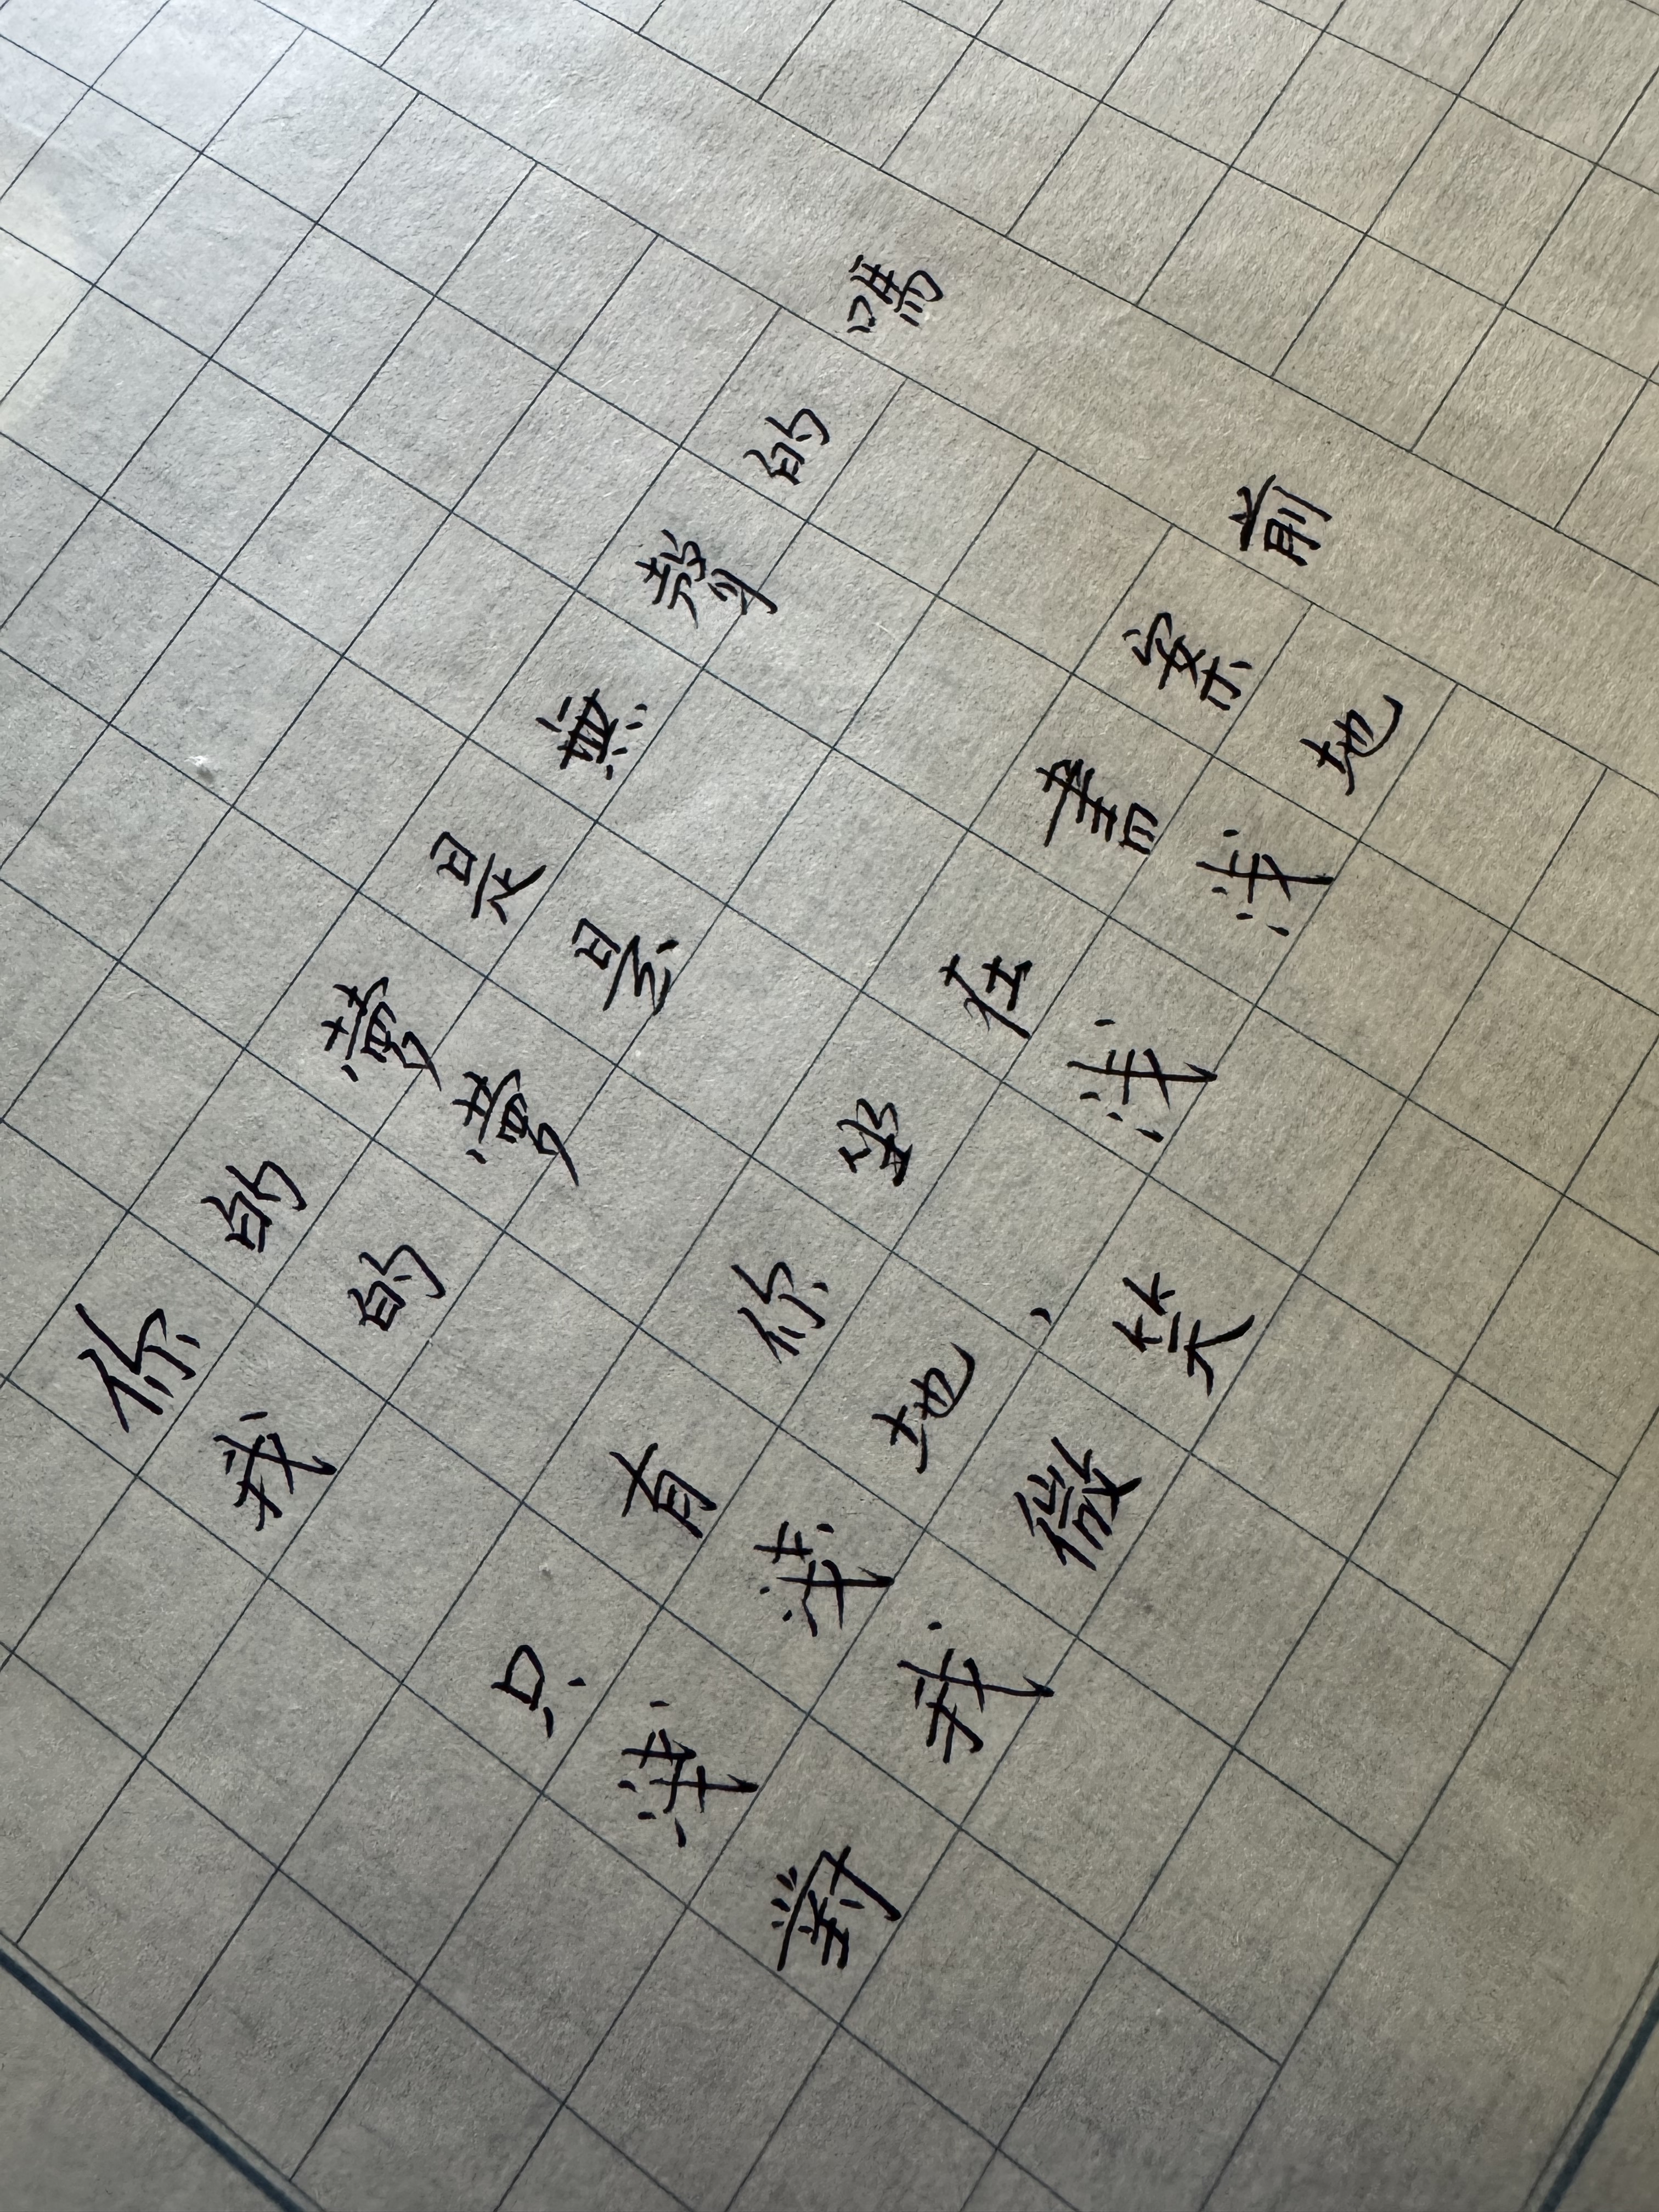 你的夢是無聲的嗎
我的夢是
只有你坐在書案前
浅浅地，浅浅地
對我微笑